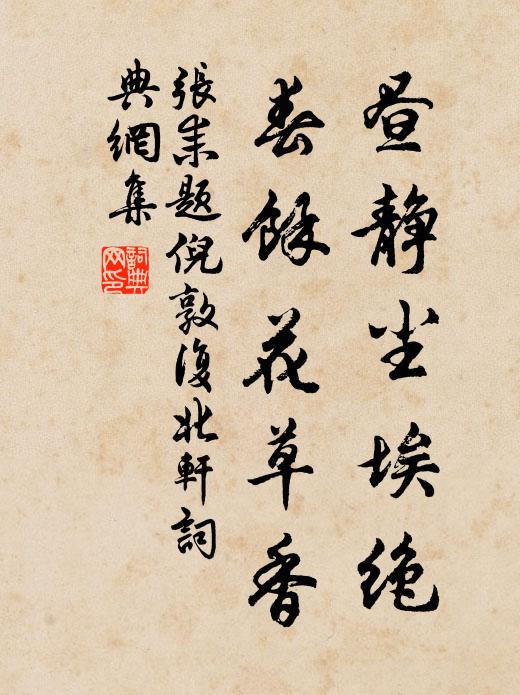 昼静尘埃绝
春餘花草香
張耒题倪敦復北軒詞
典網集
詞典網印